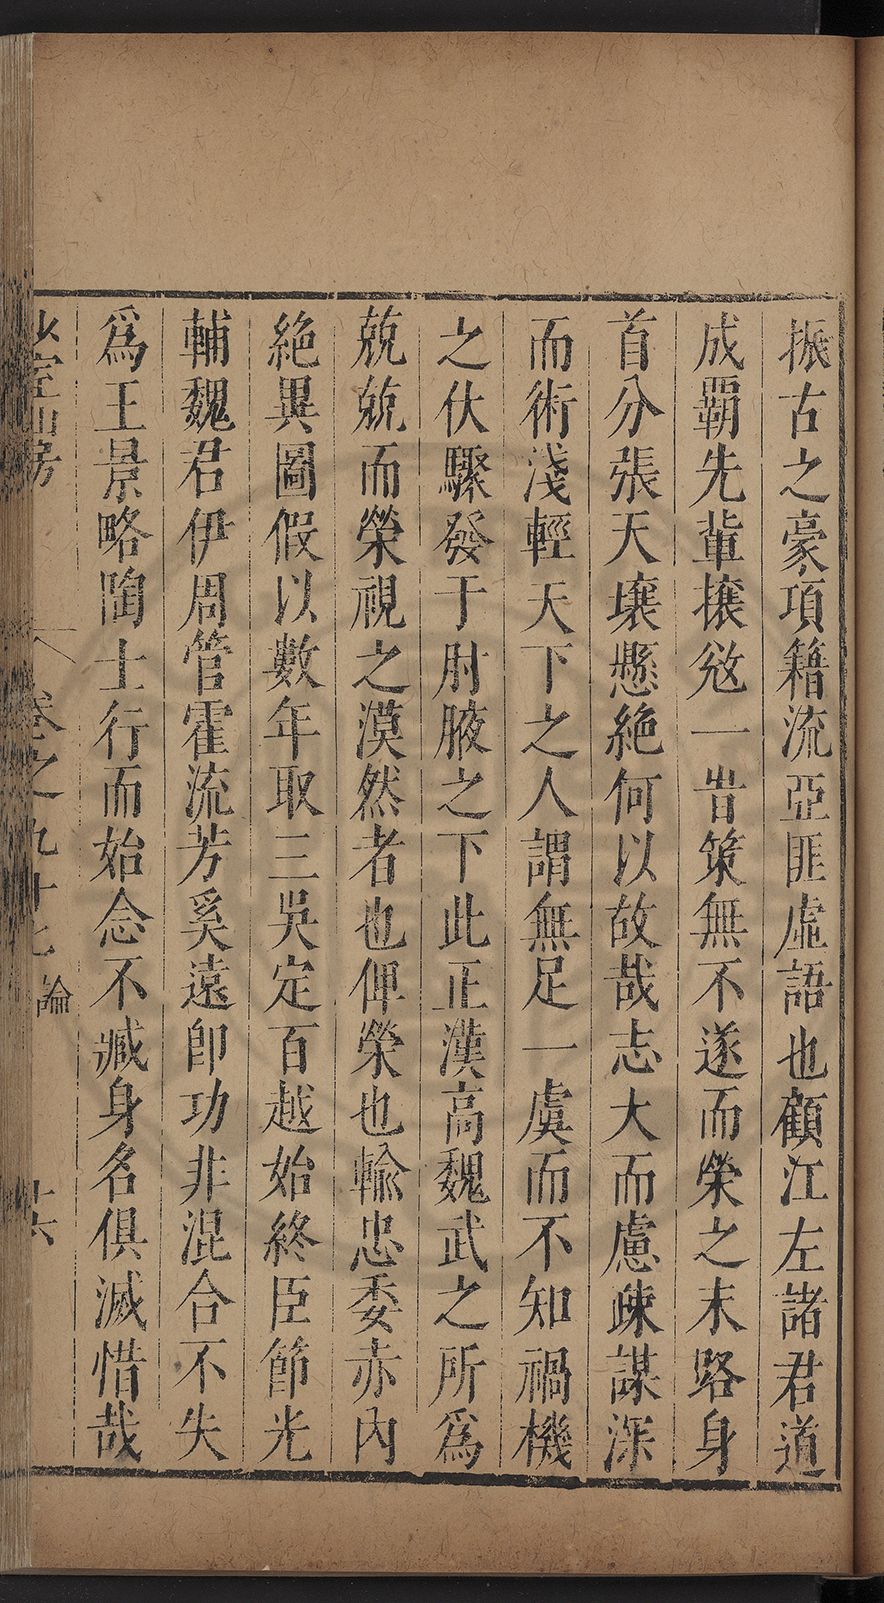 振古之豪項籍流亞匪虛語也顧江左諸君道
成覇先輩攘逆一時策無不遂而榮之末路身
首分張天壤懸絶何以故哉志大而慮疎謀深
而術淺輕天下之人謂無足一虞而不知禍機
之伏驟發于肘腋之下此正漢高魏武之所爲
兢兢而榮視之漠然者也俾榮也輸忠委赤內
絶異圖假以數年取三吳定百越始終臣節光
輔魏君伊周管霍流芳奚遠卽功非混合不失
爲王景略陶士行而始念不臧身名俱滅惜哉
少室山房 卷之九十七 論 十六